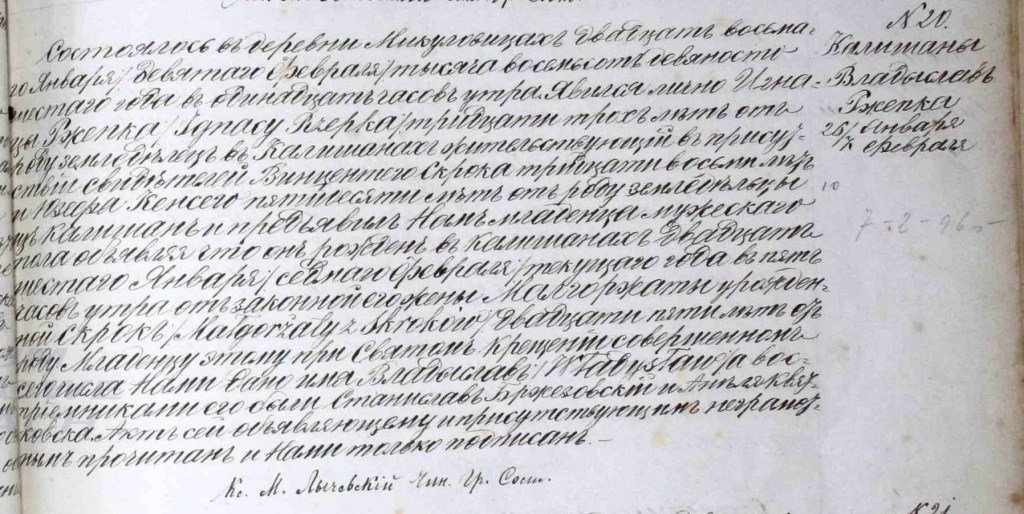 N 20.
Калишаны
Владыславъ
Ржепка
26/ Января
7 февраля
Состоялось въ деревни Микуловицахъ двадцать восьма-
го Января/ девятаго февраля/ тысяча восемьсотъ девяносто
шестаго года въ одинадцать часовъ утра. Явился лично Игна-
цы Ржепка /Ignacy Rzepka/ тридцати трохъ лѣтъ отъ
роду земледѣлецъ въ Калишанахъ жительствующій въ присут-
ствіи свидѣтелей Винцентего Скрока тридцати восьми лѣтъ
и Юзефа Кенсего пятидесяти лѣтъ отъ роду земледѣльцы
изъ Калишанъ и предъявилъ Намъ младенца мужескаго
пола объявляя что онъ рожденъ въ Калишанахъ двадцать
шестаго Января /седмаго февраля/ текущаго года въ пять
часовъ утра отъ законной его жены Малгоржаты урожден-
ной Скрокъ /Małgorzaty z Skroków/ двадцати пяти лѣтъ отъ
роду. Младенцу этому при Святомъ Крещеніи совершенномъ
сегочисла Нами дано имя Владыславъ /Władysław/ а вос-
пріемниками его были Станиславъ Бржезовскій и Анеля Квят-
ковска. Актъ сей объявляющему и присутствующимъ неграмот-
нымъ прочитанъ и Нами только подписанъ. —
Кс. М. Лычевскій Чин. Гр. Сост.
7-2-96
10
N 21